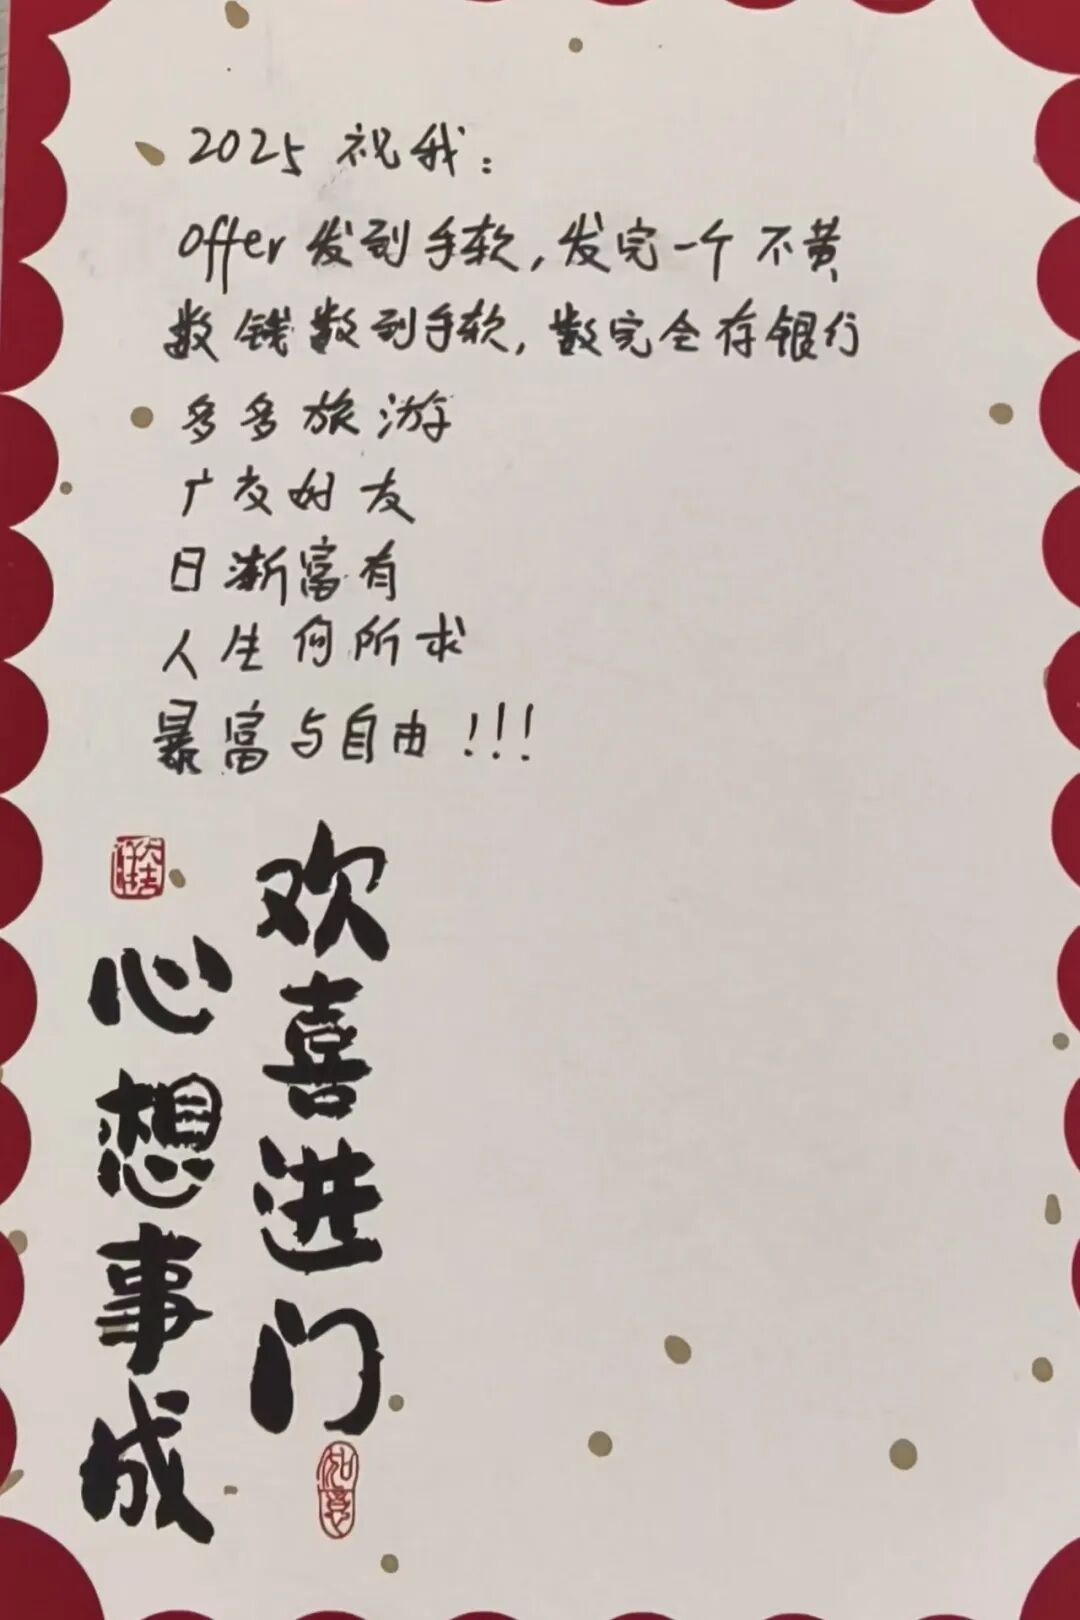 2025 祝我：
offer 发到手软，发完一个不黄
数钱数到手软，数完全存银行
多多旅游
广交好友
日渐富有
人生何所求
暴富与自由！！！
欢喜进门
如意
心想事成